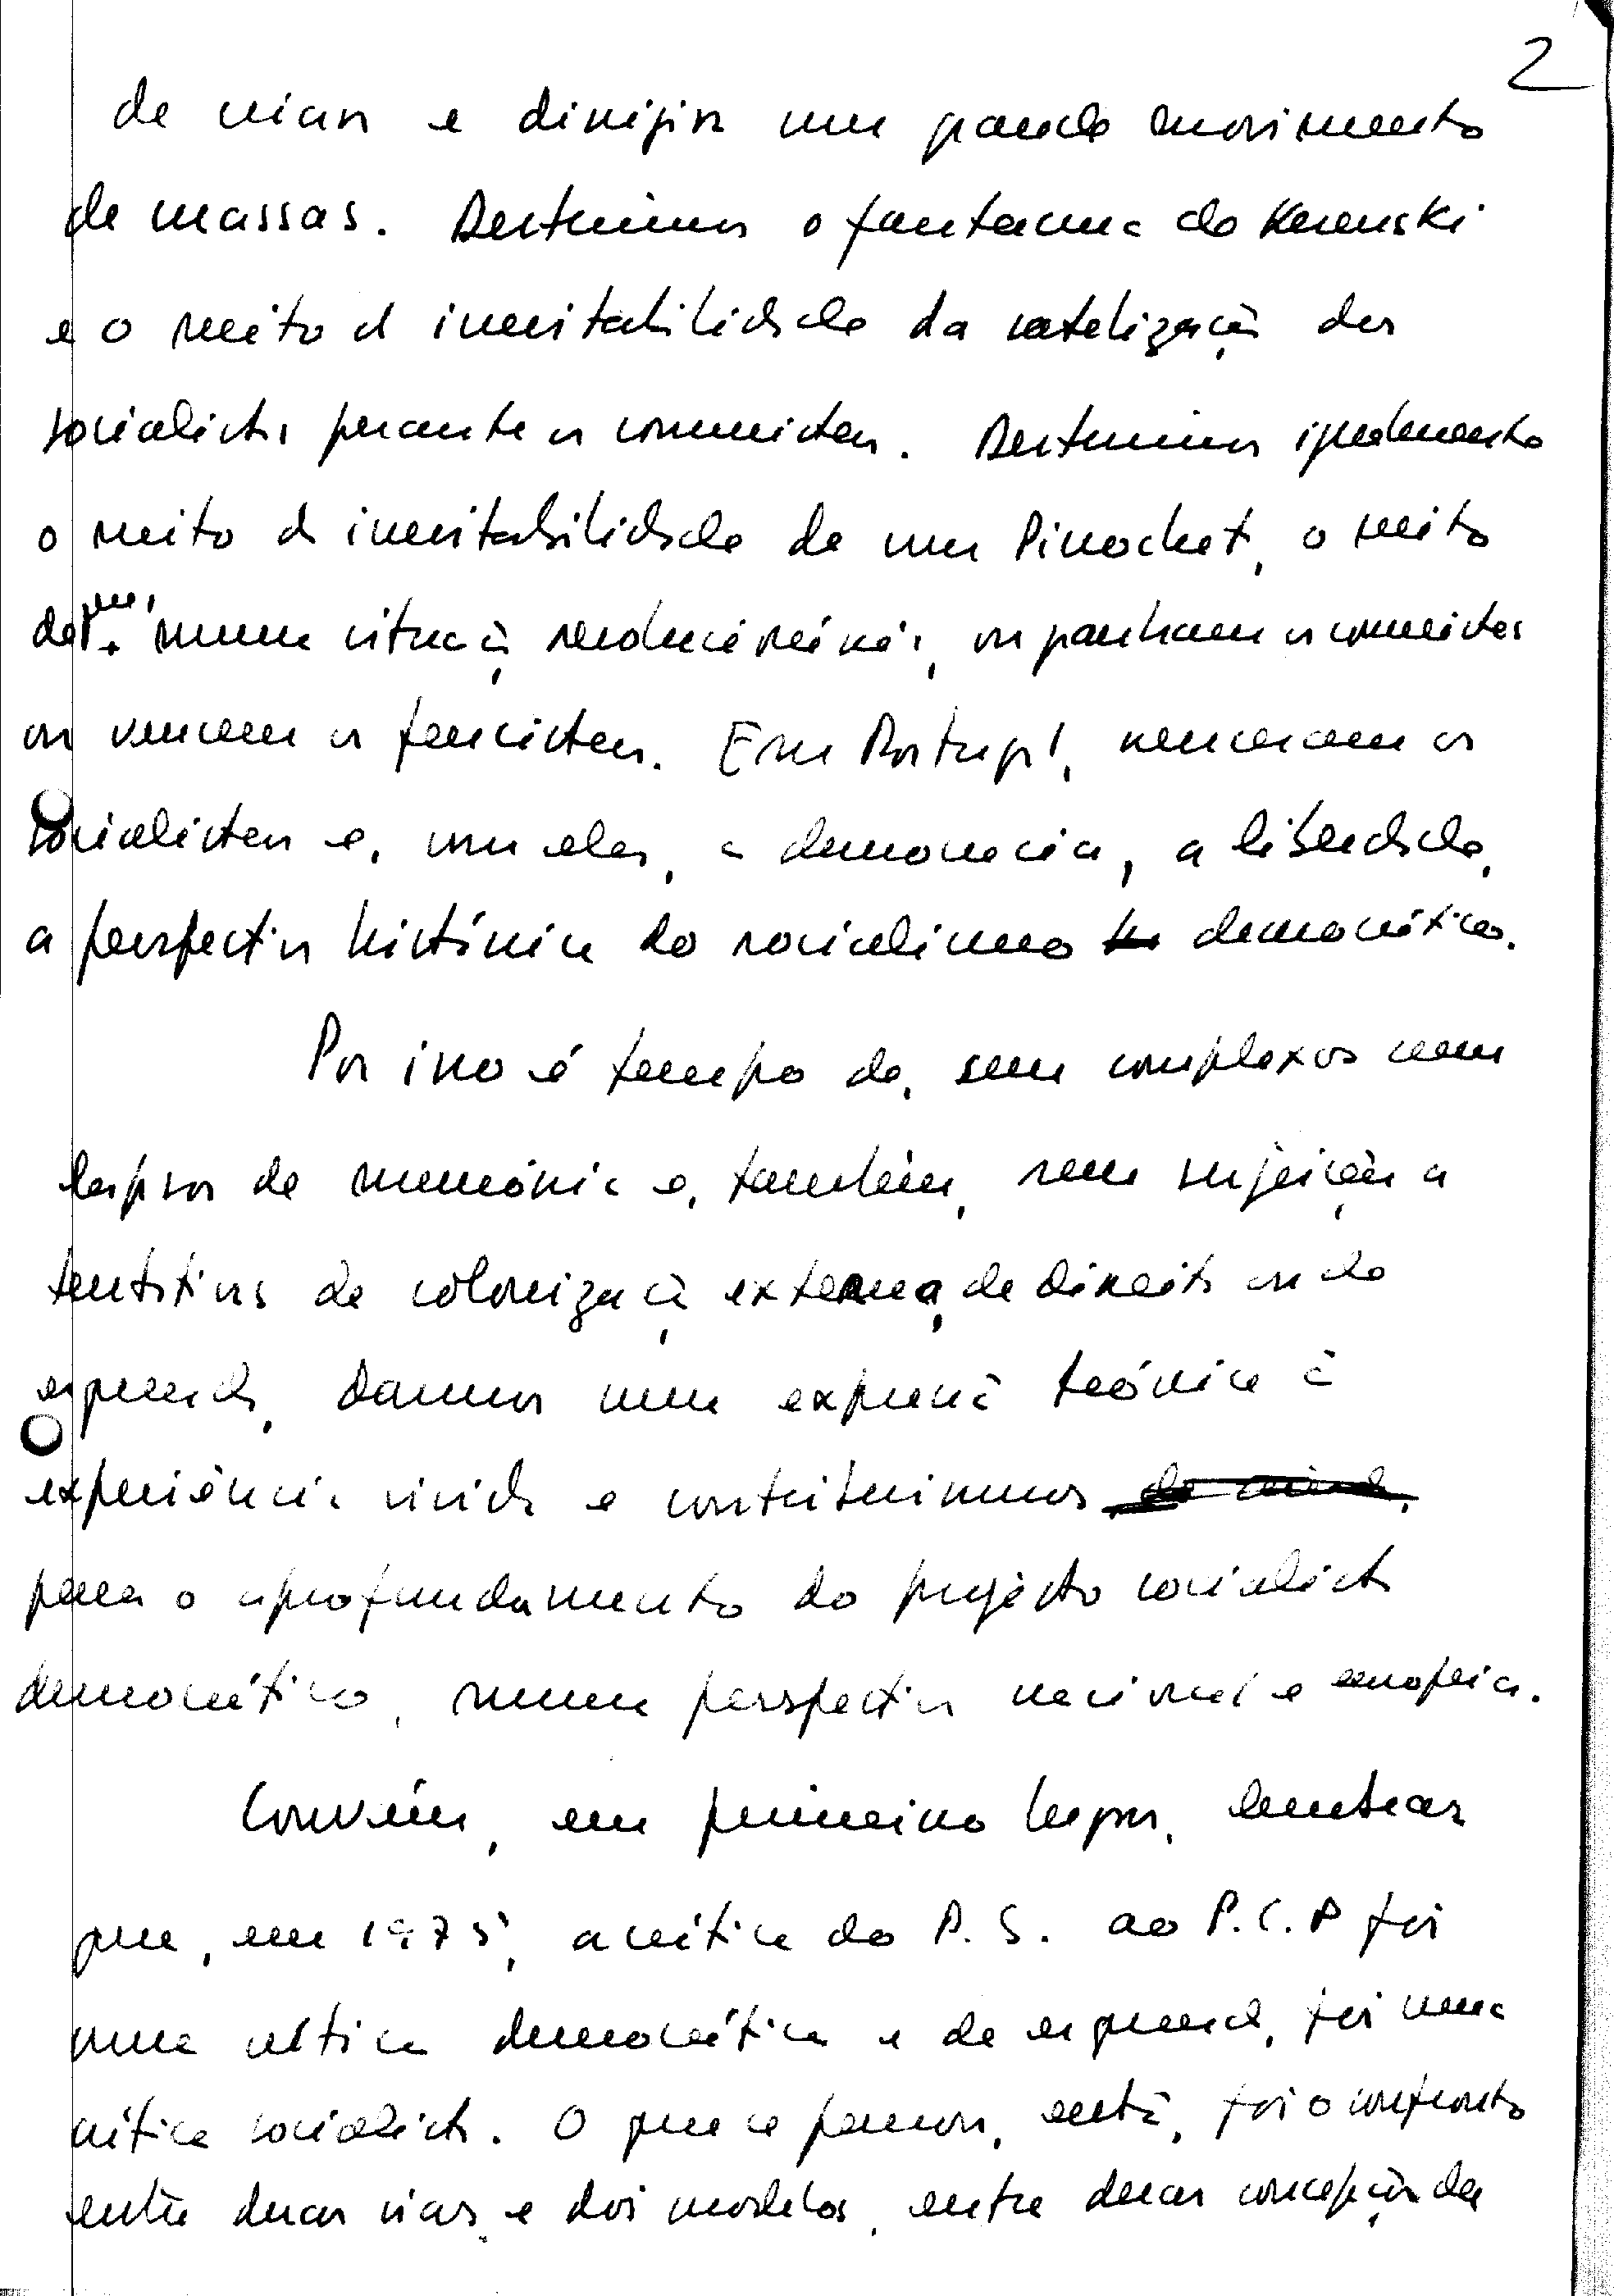 2
de criar e dirigir um grande movimento
de massas. Destruimos o fantasma de Kerenski
e o mito da inevitabilidade da satelização dos
socialistas perante os comunistas. Destruimos igualmente
o mito da inevitabilidade de um Pinochet, o mito
de que, numa situação revolucionária, ou ganham os comunistas
ou vencem os fascistas. Em Portugal, venceram os
socialistas e, com eles, a democracia, a liberdade,
a perspectiva histórica do socialismo democrático.
Por isso é tempo de, sem complexos nem
lapsos de memória e, também, sem sujeição a
tentativas de colonização externa, de direita ou de
esquerda, darmos uma expressão teórica à
experiência vivida e contribuirmos
para o aprofundamento do projecto socialista
democrático, numa perspectiva nacional e europeia.
Convém, em primeiro lugar, lembrar
que, em 1975, a crítica do P.S. ao P.C.P foi
uma crítica democrática e de esquerda, foi uma
crítica socialista. O que se passou, então, foi o confronto
entre duas vias e dois modelos, entre duas concepções da